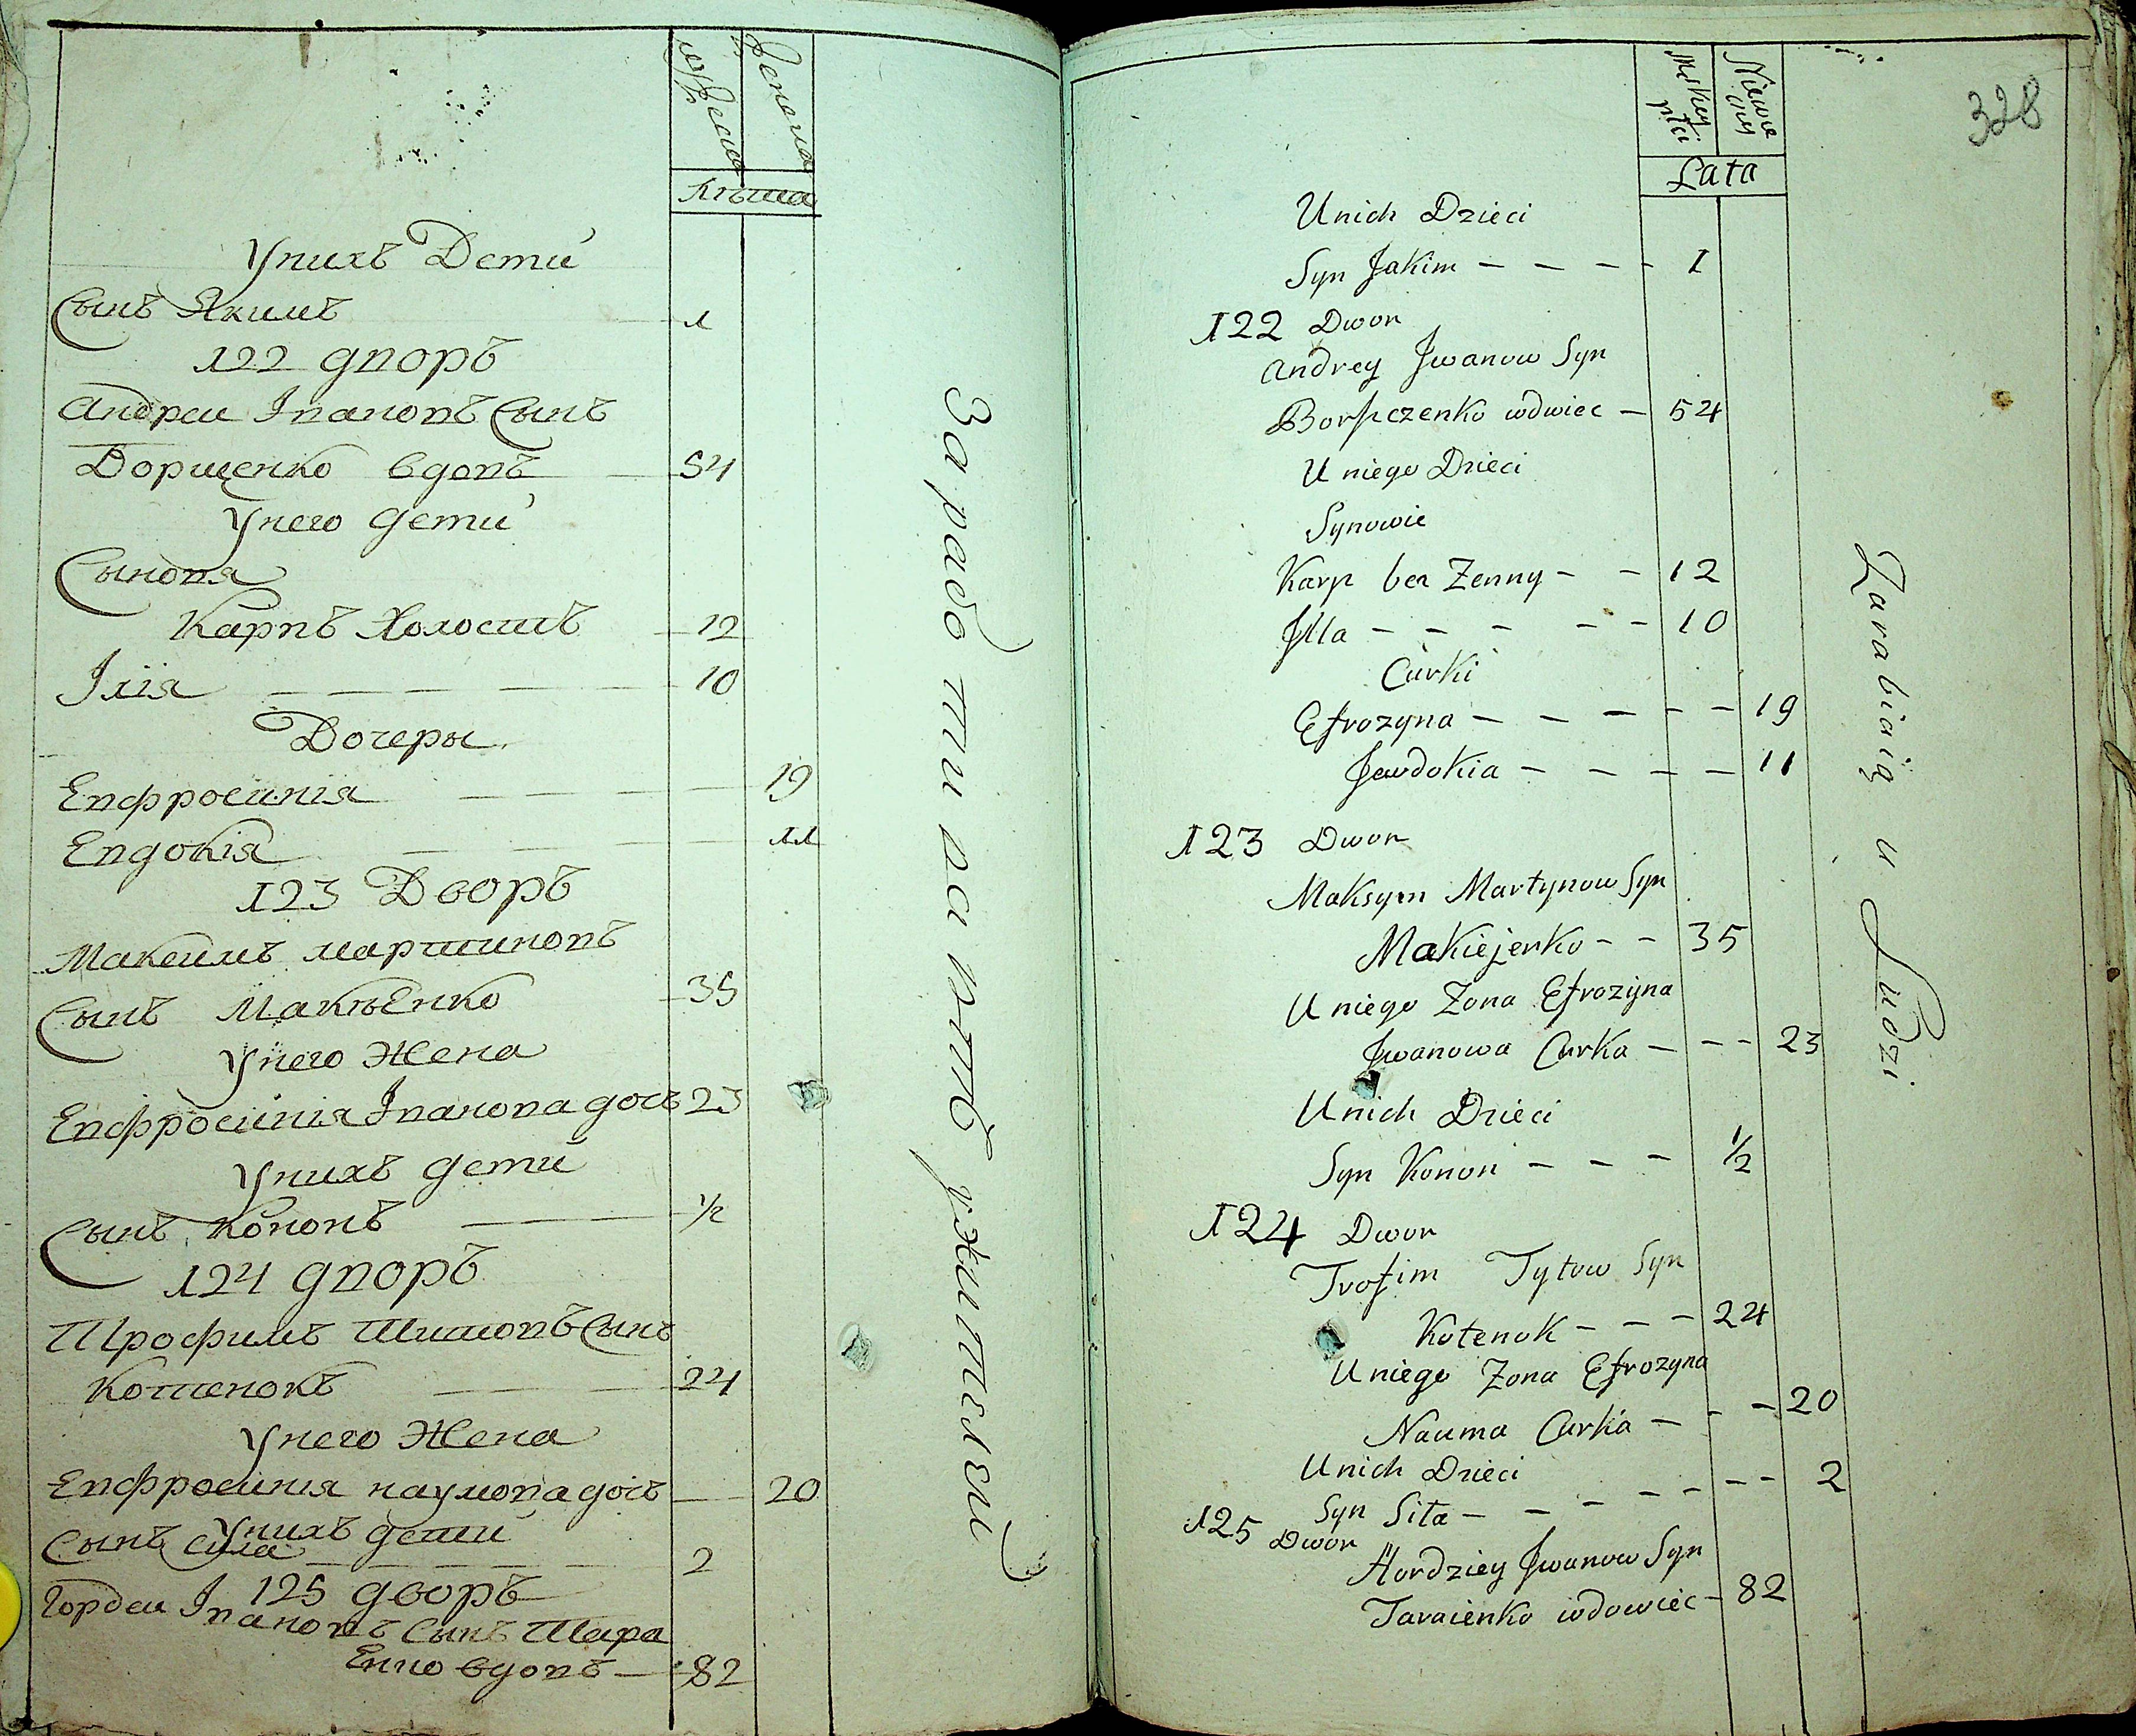 Женска
Лѣта
Унихъ Дети
Сынъ Якимъ 1
122 дворъ
Андреи Івановъ Сынъ
Борщенко вдовъ 54
Унего дети
Сыновя
Карпъ Холостъ 12
Ілія — — — — — 10
Дочеры
Евфросинія — — — 19
Евдокія — — — — 11
123 Дворъ
Максимъ мартиновъ
Сынъ Макѣенко 35
Унего Жена
Евфросинія Іванова дочъ 23
Унихъ дети
Сынъ Кононъ — ½
124 дворъ
Трофимъ Титовъ Сынъ
Котенокъ — 24
Унего Жена
Евфросинія наумова дочъ — 20
Унихъ дети
Сынъ Сила — — — — — 2
125 дворъ
Гордеи Івановъ Сынъ Тара
Енко вдовъ — 82
Заработиваютъ ужителей
328
Męzkey płci
Niewie
Lata
Unich Dzieci
Syn Jakim — — — — 1
122 Dwor
Andrey Jwanow Syn
Borszczenko wdwiec — 54
U niego Dzieci
Synowie
Karp bez Zenny — — 12
Jlla — — — — — 10
Curki
Efrozyna — — — — — 19
Jewdokia — — — — 11
123 Dwor
Maksym Martynow Syn
Makiejenko — — 35
U niego Zona Efrozyna
Jwanowa Curka — — — 23
Unich Dzieci
Syn Konon — — — ½
124 Dwor
Trofim Tytow Syn
Kotenok — — — 24
U niego Zona Efrozyna
Nauma Curka — — — 20
Unich Dzieci
Syn Siła — — — — — — — 2
125 Dwor
Hordziey Jwanow Syn
Taraienko wdowiec — 82
Zarabiaią u Ludzi